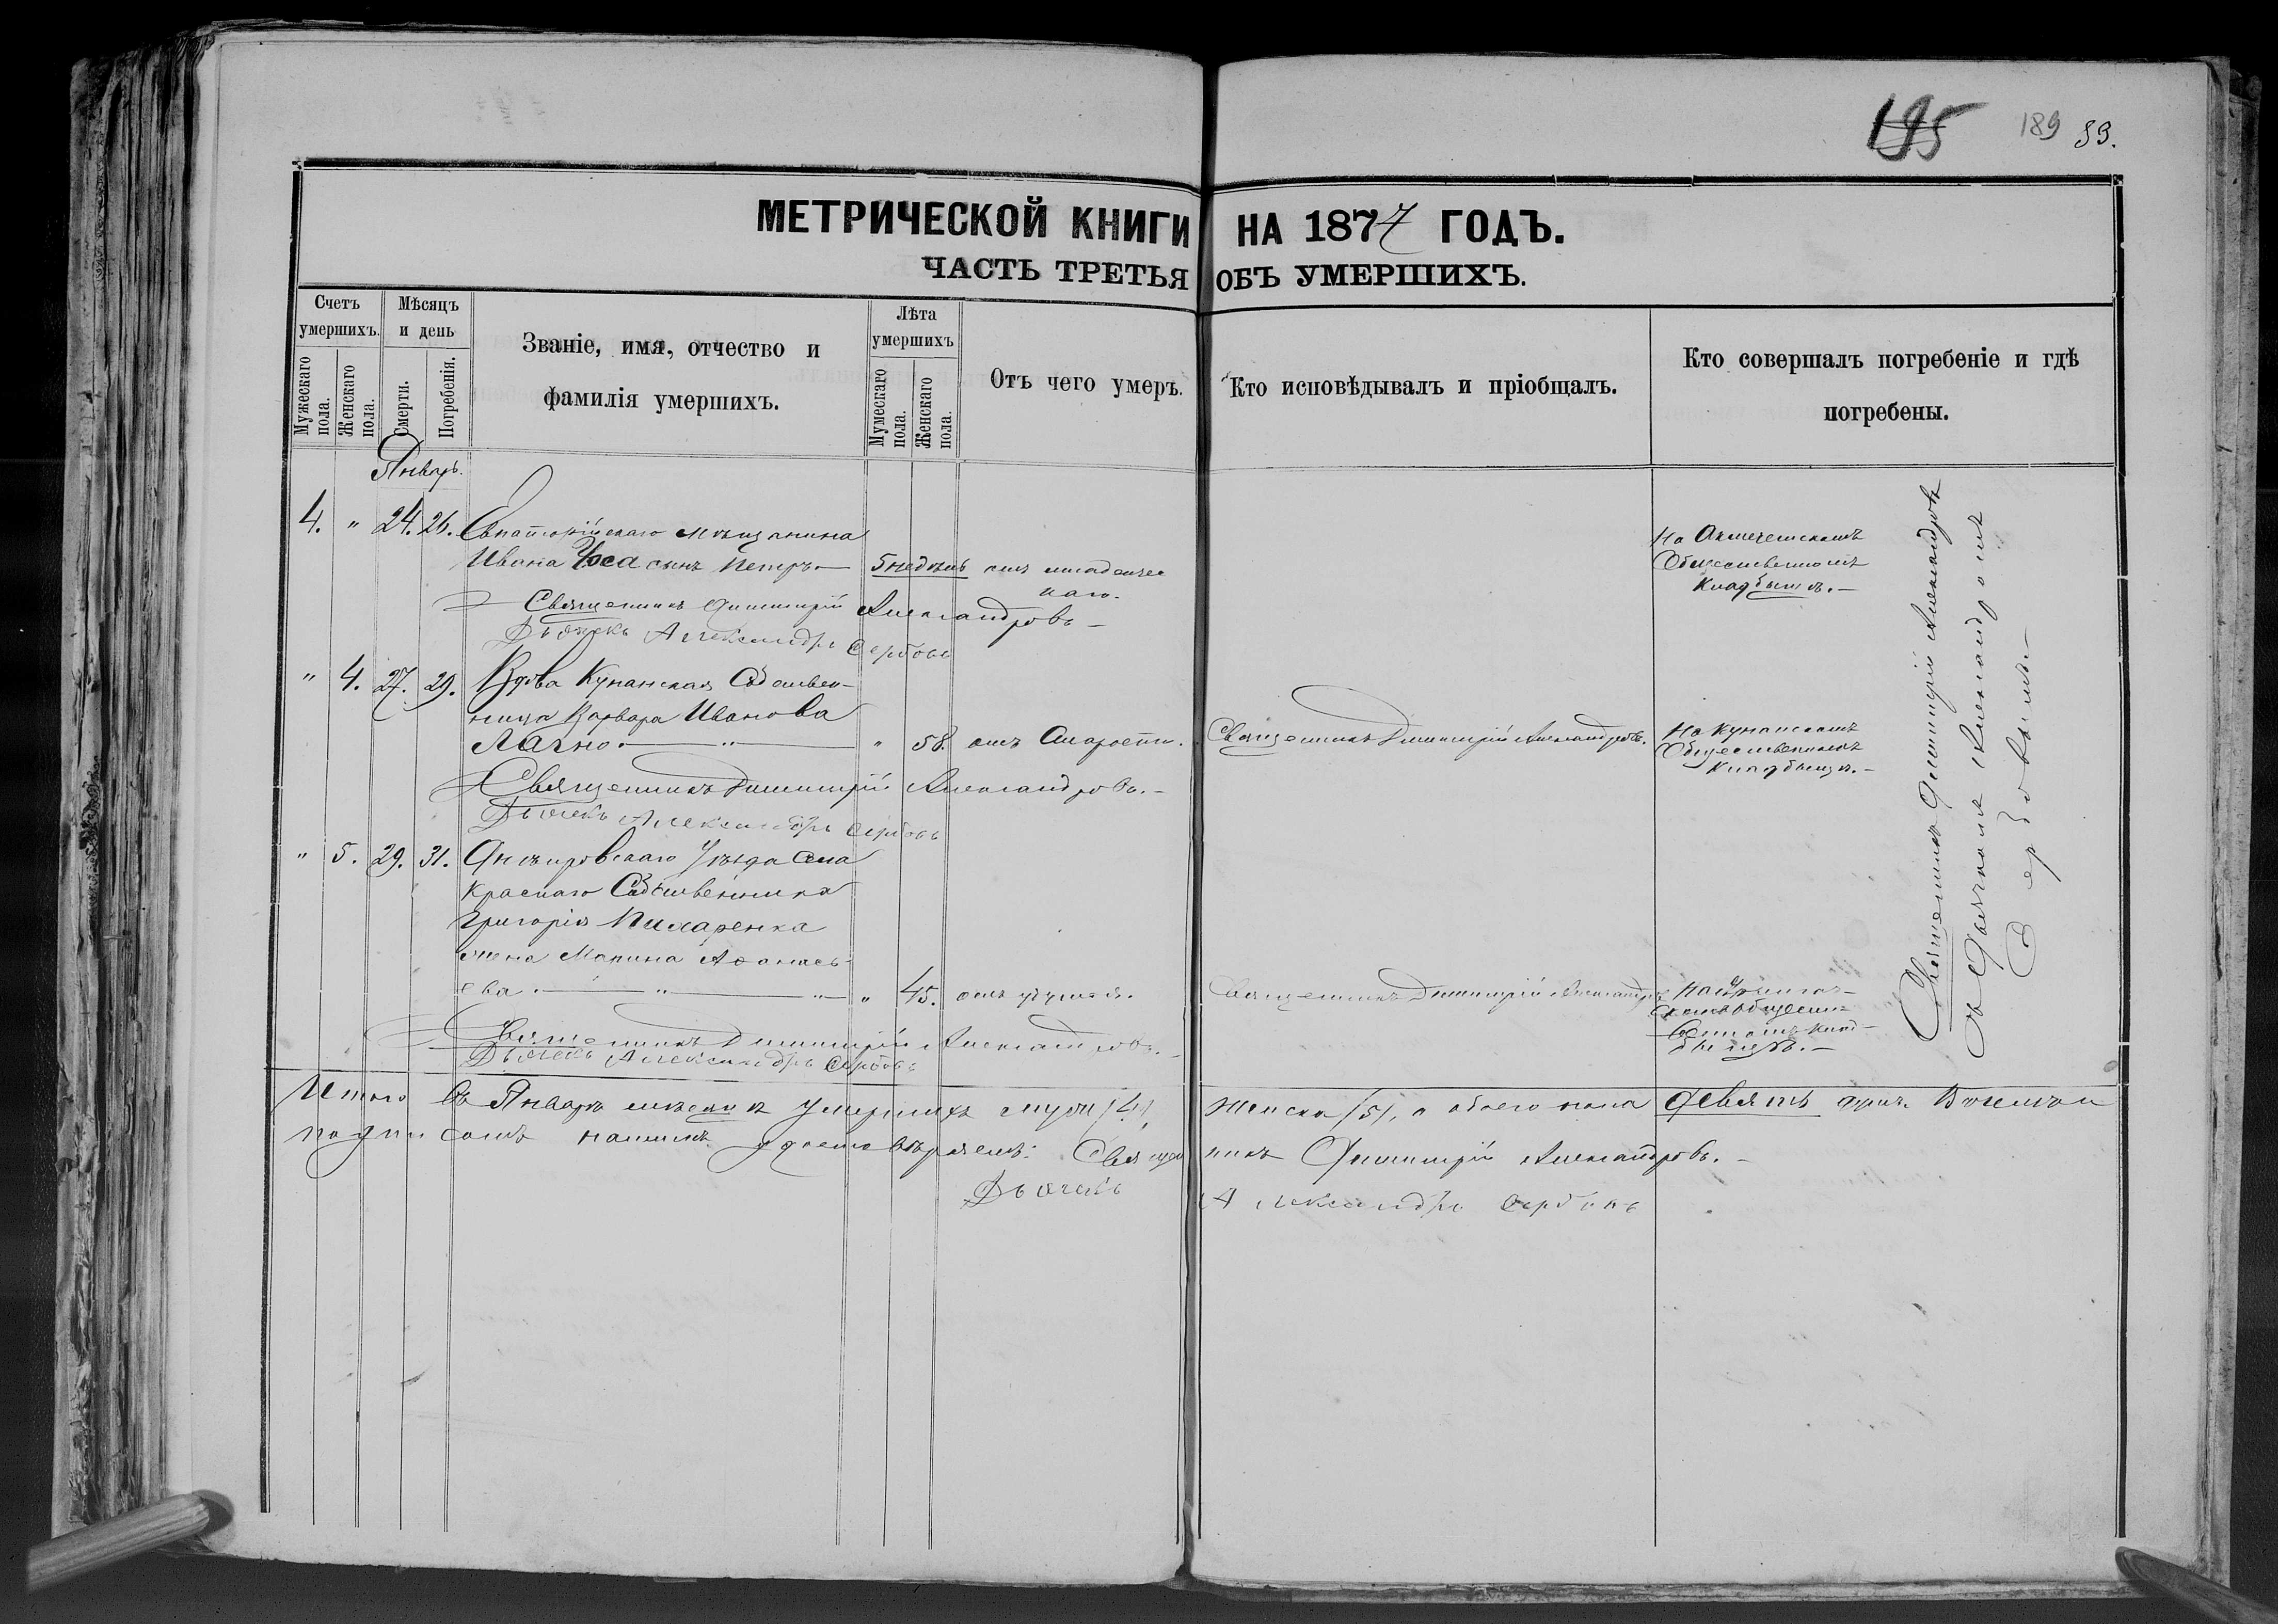 195 189 89.
МЕТРИЧЕСКОЙ КНИГИ НА 1877 ГОДЪ.
ЧАСТЬ ТРЕТЬЯ ОБЪ УМЕРШИХЪ.
Счетъ умершихъ.
Мужескаго пола.
Женскаго пола.
Мѣсяцъ и день
Смерти.
Погребенія.
Званіе, имя, отчество и
фамилія умершихъ.
Лѣта умершихъ
Мумескаго пола.
Женскаго пола.
Отъ чего умеръ.
Кто исповѣдывалъ и пріобщалъ.
Кто совершалъ погребеніе и гдѣ
погребены.
Январь.
4. " 24. 26. Евпаторійскаго мѣщанина
Ивана Уса сынъ Петръ — 5 недѣль отъ младенчес
каго.
На Акмечетскомъ
Общественномъ
кладбищѣ. —
Священникъ Димитрій Александровъ —
Дьячекъ Александръ Сербовъ
" 4. 27. 29. Вдова Кунанская Собствен-
ница Варвара Иванова
" 58. отъ Старости. Священникъ Димитрій Александровъ.
На Кунанскомъ
Общественномъ
кладбищѣ. —
Священникъ Димитрій Александровъ. —
Дьячекъ Александръ Сербовъ
" 5. 29. 31. Днѣпровскаго Уѣзда села
Краснаго Собственника
Григорія Писаренка
жена Марина Аѳанась-
ева — " — " — " 45. отъ удушья. Священникъ Димитрій Александровъ
обществен-
номъ клад-
бищѣ. —
Священникъ Димитрій Александровъ. —
Дьячекъ Александръ Сербовъ
Священникъ Димитрій Александровъ
съ Дьячкомъ Александромъ
Сербовымъ. —
Итого въ Январѣ мѣсяцѣ умершихъ муж. /4/, женска /5/, а обоего пола девять душъ. Въ чемъ и
подписомъ нашимъ удостовѣряемъ: Священникъ Димитрій Александровъ. —
Дьячекъ Александръ Сербовъ